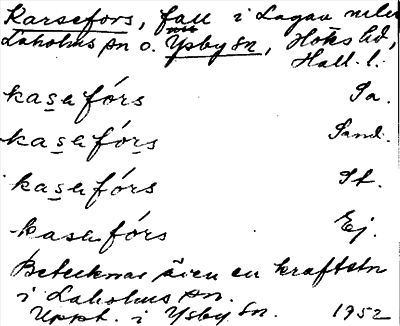 Karsefors, fall i Lagan mellan
Laholms sn o. Ysby sn, Höks hd,
Hall. l.
kasafórs Sa.
kasafórs Sand.
kasafórs St.
kasafórs Ej.
Betecknar även en kraftstn
i Laholms sn.
Uppt. i Ysby sn. 1952